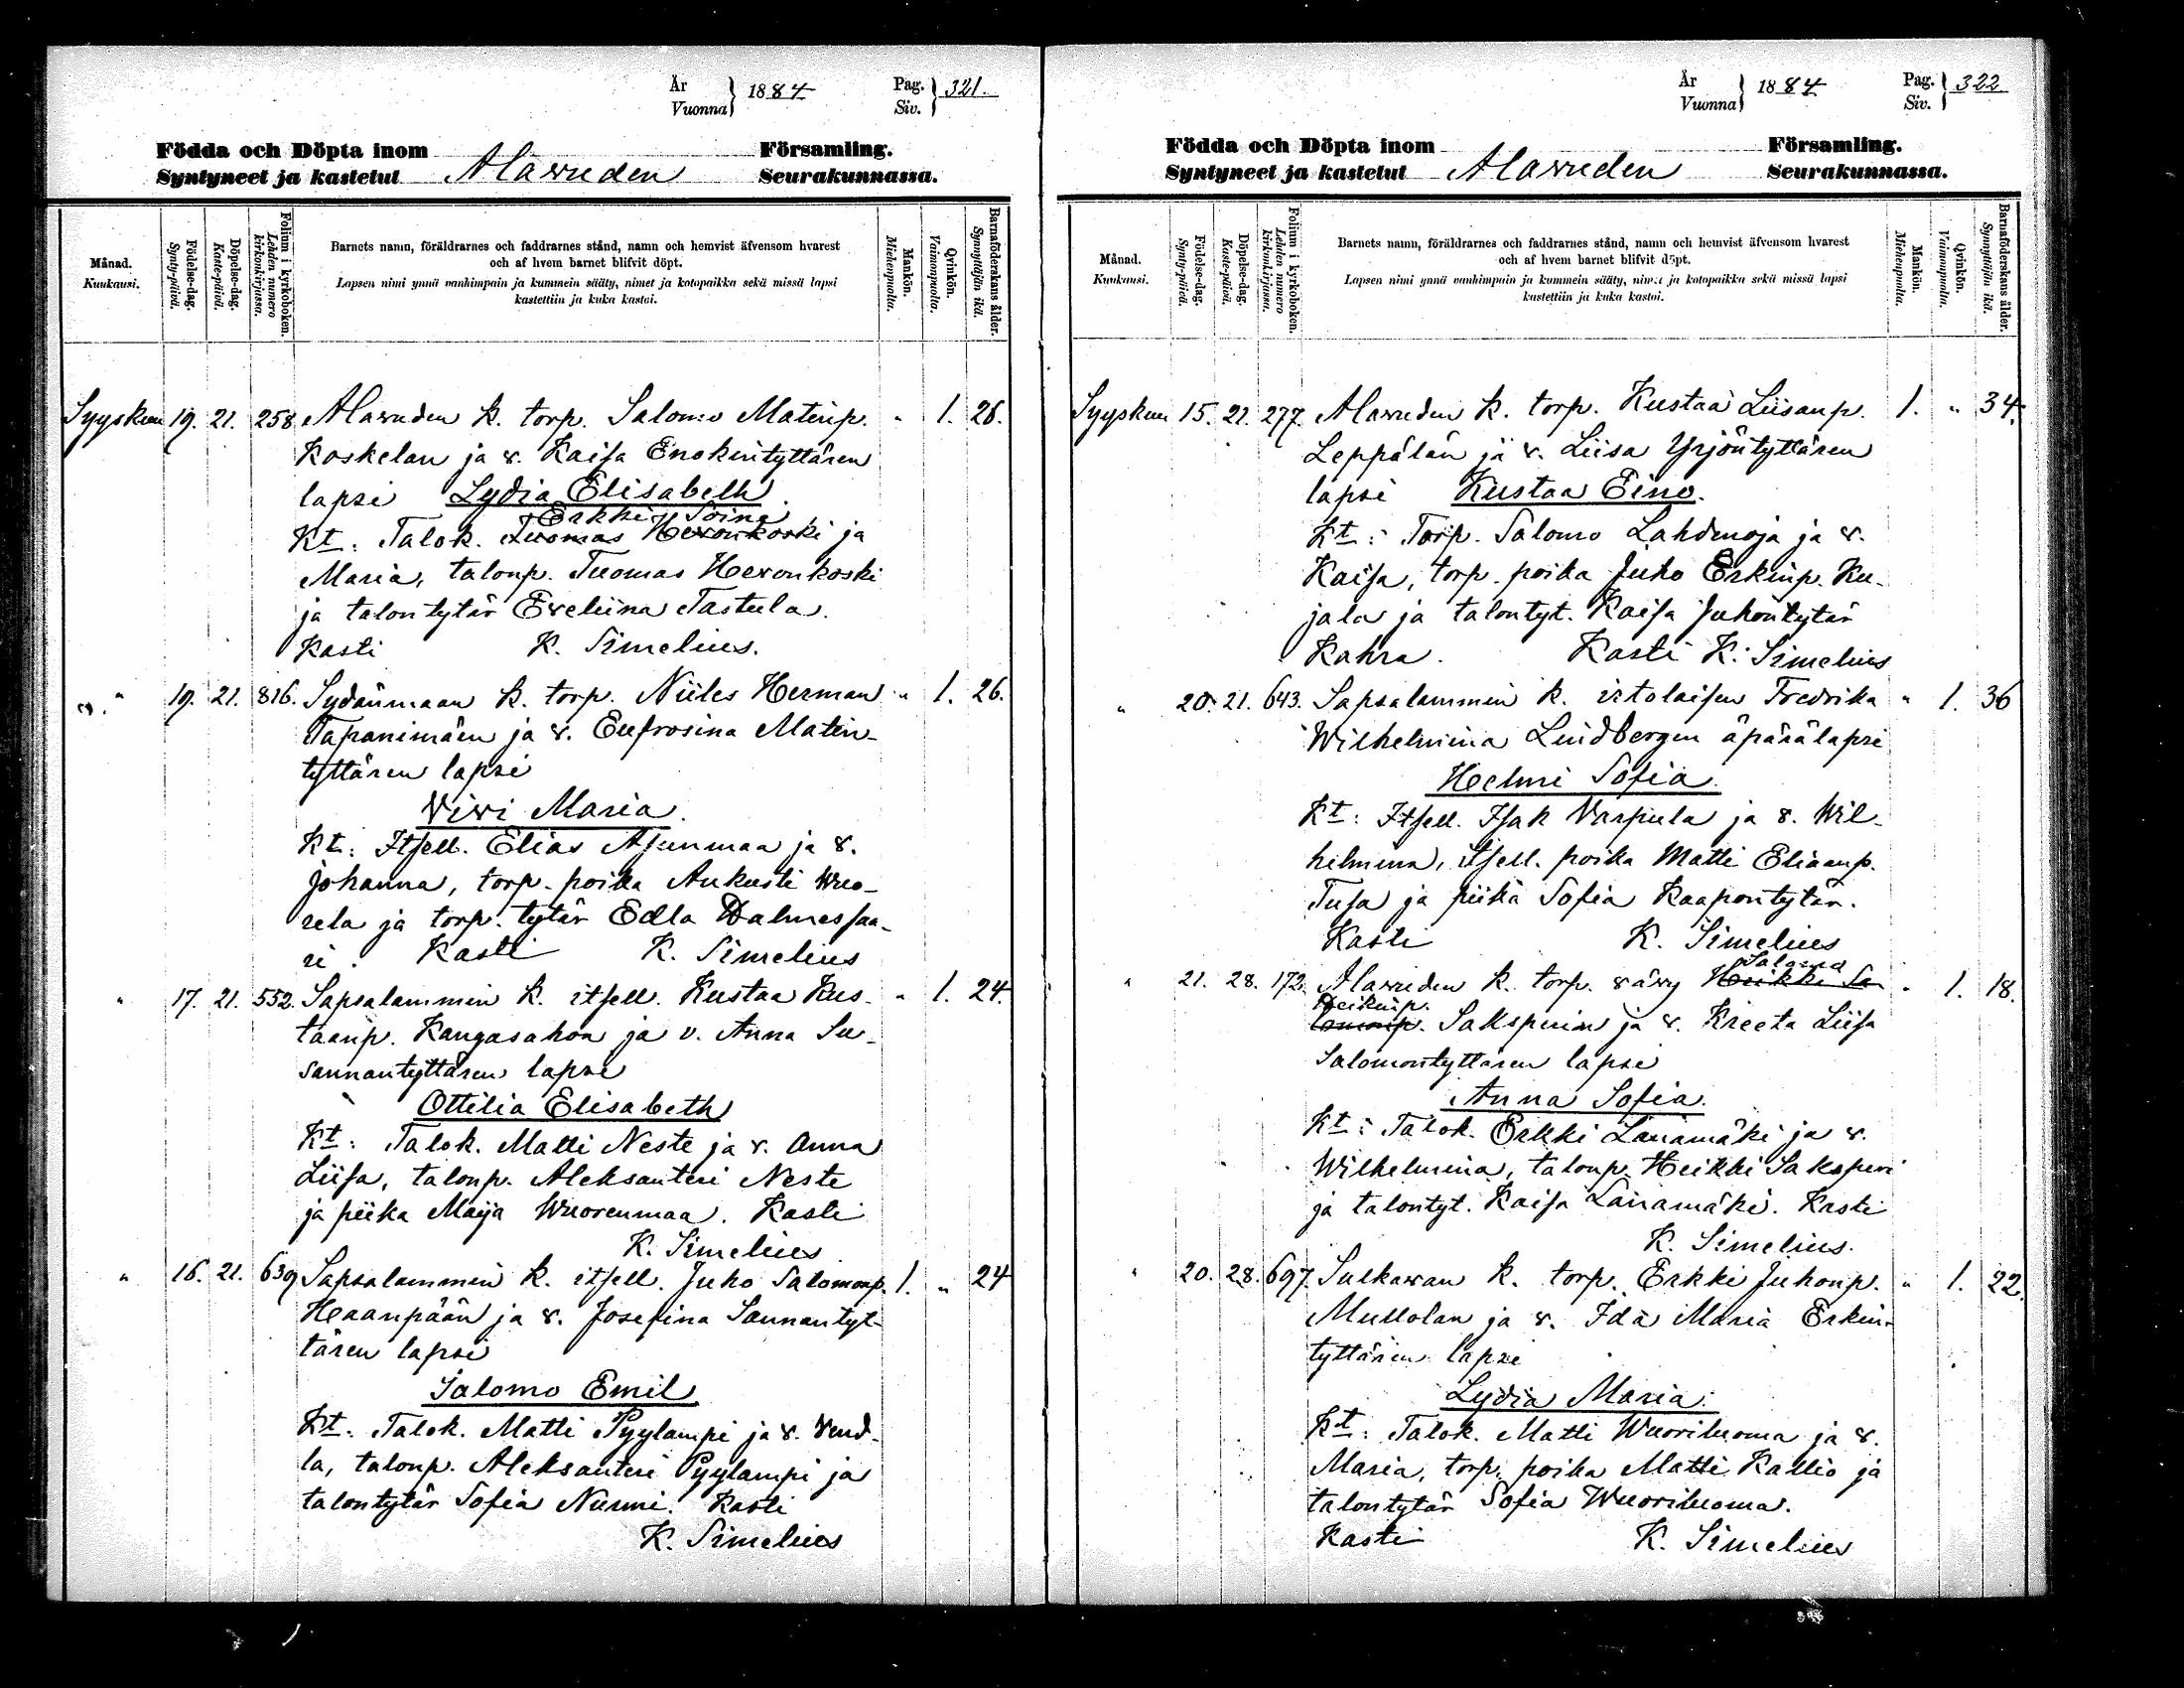 År
Vuonna 1884
Pag.
Siv. 321.
Födda och Döpta inom Församling.
Syntyneet ja kastetut Alavuden Seurakunnassa.
Månad.
Kuukausi.
Födelse-dag.
Synty-päivä.
Döpelse-dag.
Kaste-päivä.
Folium i kyrkoboken.
Lehden numero kirkonkirjassa.
Barnets namn, föräldrarnes och faddrarnes stånd, namn och hemvist äfvensom hvarest
och af hvem barnet blifvit döpt.
Lapsen nimi ynnä vanhimpain ja kummein sääty, nimet ja kotopaikka sekä missä lapsi
kastettiin ja kuka kastoi.
Mankön.
Miehenpuolta.
Qvinkön.
Vaimonpuolta.
Barnaföderskans ålder.
Synnyttäjän ikä.
Syyskuu 19. 21. 258. Alavuden k. torp. Salomo Matinp. " 1. 26.
Koskelan ja v. Kaisa Enokintyttären
lapsi Lydia Elisabeth.
Erkki Soini
Kt: Talok. Tuomas Hevonkoski ja
Maria, talonp. Tuomas Hevonkoski
ja talontytär Eveliina Tastula.
Kasti K. Simelius.
" 19. 21. 816. Sydänmaan k. torp. Niiles Herman " 1. 26.
Tapanimäen ja v. Eufrosina Matin-
tyttären lapsi
Viivi Maria.
Kt: Itsell. Elias Asunmaa ja v.
Johanna, torp. poika Aukusti Wuo-
rela ja torp. tytär Edla Halmessaa-
ri. Kasti K. Simelius
" 17. 21. 552. Sapsalammin k. itsell. Kustaa Kus- " 1. 24.
taanp. Kangasahon ja v. Anna Su-
sannantyttären lapsi
Ottilia Elisabeth
Kt: Talok. Matti Neste ja v. Anna
Liisa, talonp. Aleksanteri Neste
ja piika Maija Wuorenmaa. Kasti
K. Simelius
" 16. 21. 639 Sapsalammin k. itsell. Juho Salomonp. 1. " 24
Haanpään ja v. Josefina Sannantyt-
tären lapsi
Salomo Emil
Kt: Talok. Matti Pyylampi ja v. Vend-
la, talonp. Aleksanteri Pyylampi ja
talontytär Sofia Nurmi. Kasti
K. Simelius
År
Vuonna 1884
Pag.
Siv. 322
Födda och Döpta inom Församling.
Syntyneet ja kastetut Alavuden Seurakunnassa.
Månad.
Kuukausi.
Födelse-dag.
Synty-päivä.
Döpelse-dag.
Kaste-päivä.
Folium i kyrkoboken.
Lehden numero kirkonkirjassa.
Barnets namn, föräldrarnes och faddrarnes stånd, namn och hemvist äfvensom hvarest
och af hvem barnet blifvit döpt.
Lapsen nimi ynnä vanhimpain ja kummein sääty, nimet ja kotopaikka sekä missä lapsi
kastettiin ja kuka kastoi.
Mankön.
Miehenpuolta.
Qvinkön.
Vaimonpuolta.
Barnaföderskans ålder.
Synnyttäjän ikä.
Syyskuu 15. 21. 277. Alavuden k. torp. Kustaa Liisanp. 1. " 34.
Leppälän ja v. Liisa Yrjöntyttären
lapsi Kustaa Eino.
Kt: Torp. Salomo Lahdenoja ja v.
Kaisa, torp. poika Juho Erkinp. Ku-
jala ja talontyt. Kaisa Juhontytär
Kahra. Kasti K. Simelius
" 20. 21. 643. Sapsalammin k. irtolaisen Fredrika " 1. 36
Wilhelmina Lindbergen äpärälapsi
Helmi Sofia.
Kt: Itsell. Isak Varpula ja v. Wil-
helmina, itsell. poika Matti Eliaanp.
Tusa ja piika Sofia Kaapontytär.
Kasti K. Simelius
Salomo
" 21. 28. 172. Alavuden k. torp. vävy Heikki Sa- " 1. 18.
Heikinp.
lomonp. Saksperin ja v. Kreeta Liisa
Salomontyttären lapsi
Anna Sofia.
Kt: Talok. Erkki Länämäki ja v.
Wilhelmina, talonp. Heikki Saksperi
ja talontyt. Kaisa Länämäki. Kasti
K. Simelius.
" 20. 28. 697. Sulkavan k. torp. Erkki Juhonp. " 1. 22.
Mullolan ja v. Ida Maria Erkin-
tyttären lapsi
Lydia Maria.
Kt: Talok. Matti Wuoriluoma ja v.
Maria, torp. poika Matti Kallio ja
talontytär Sofia Wuoriluoma.
Kasti K. Simelius